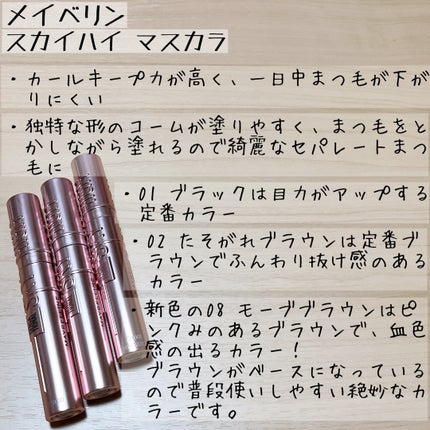 メイベリン
スカイハイ マスカラ
・カールキープ力が高く、一日中まつ毛が下が
りにくい
・独特な形のコームが塗りやすく、まつ毛をと
かしながら塗れるので綺麗なセパレートまつ
毛に
・01 ブラックは目力がアップする
定番カラー
・02 たそがれブラウンは定番ブ
ラウンでふんわり抜け感のある
カラー
・新色の08 モーブブラウンはピ
ンクみのあるブラウンで、血色
感の出るカラー！
ブラウンがベースになっている
ので普段使いしやすい絶妙なカ
ラーです。